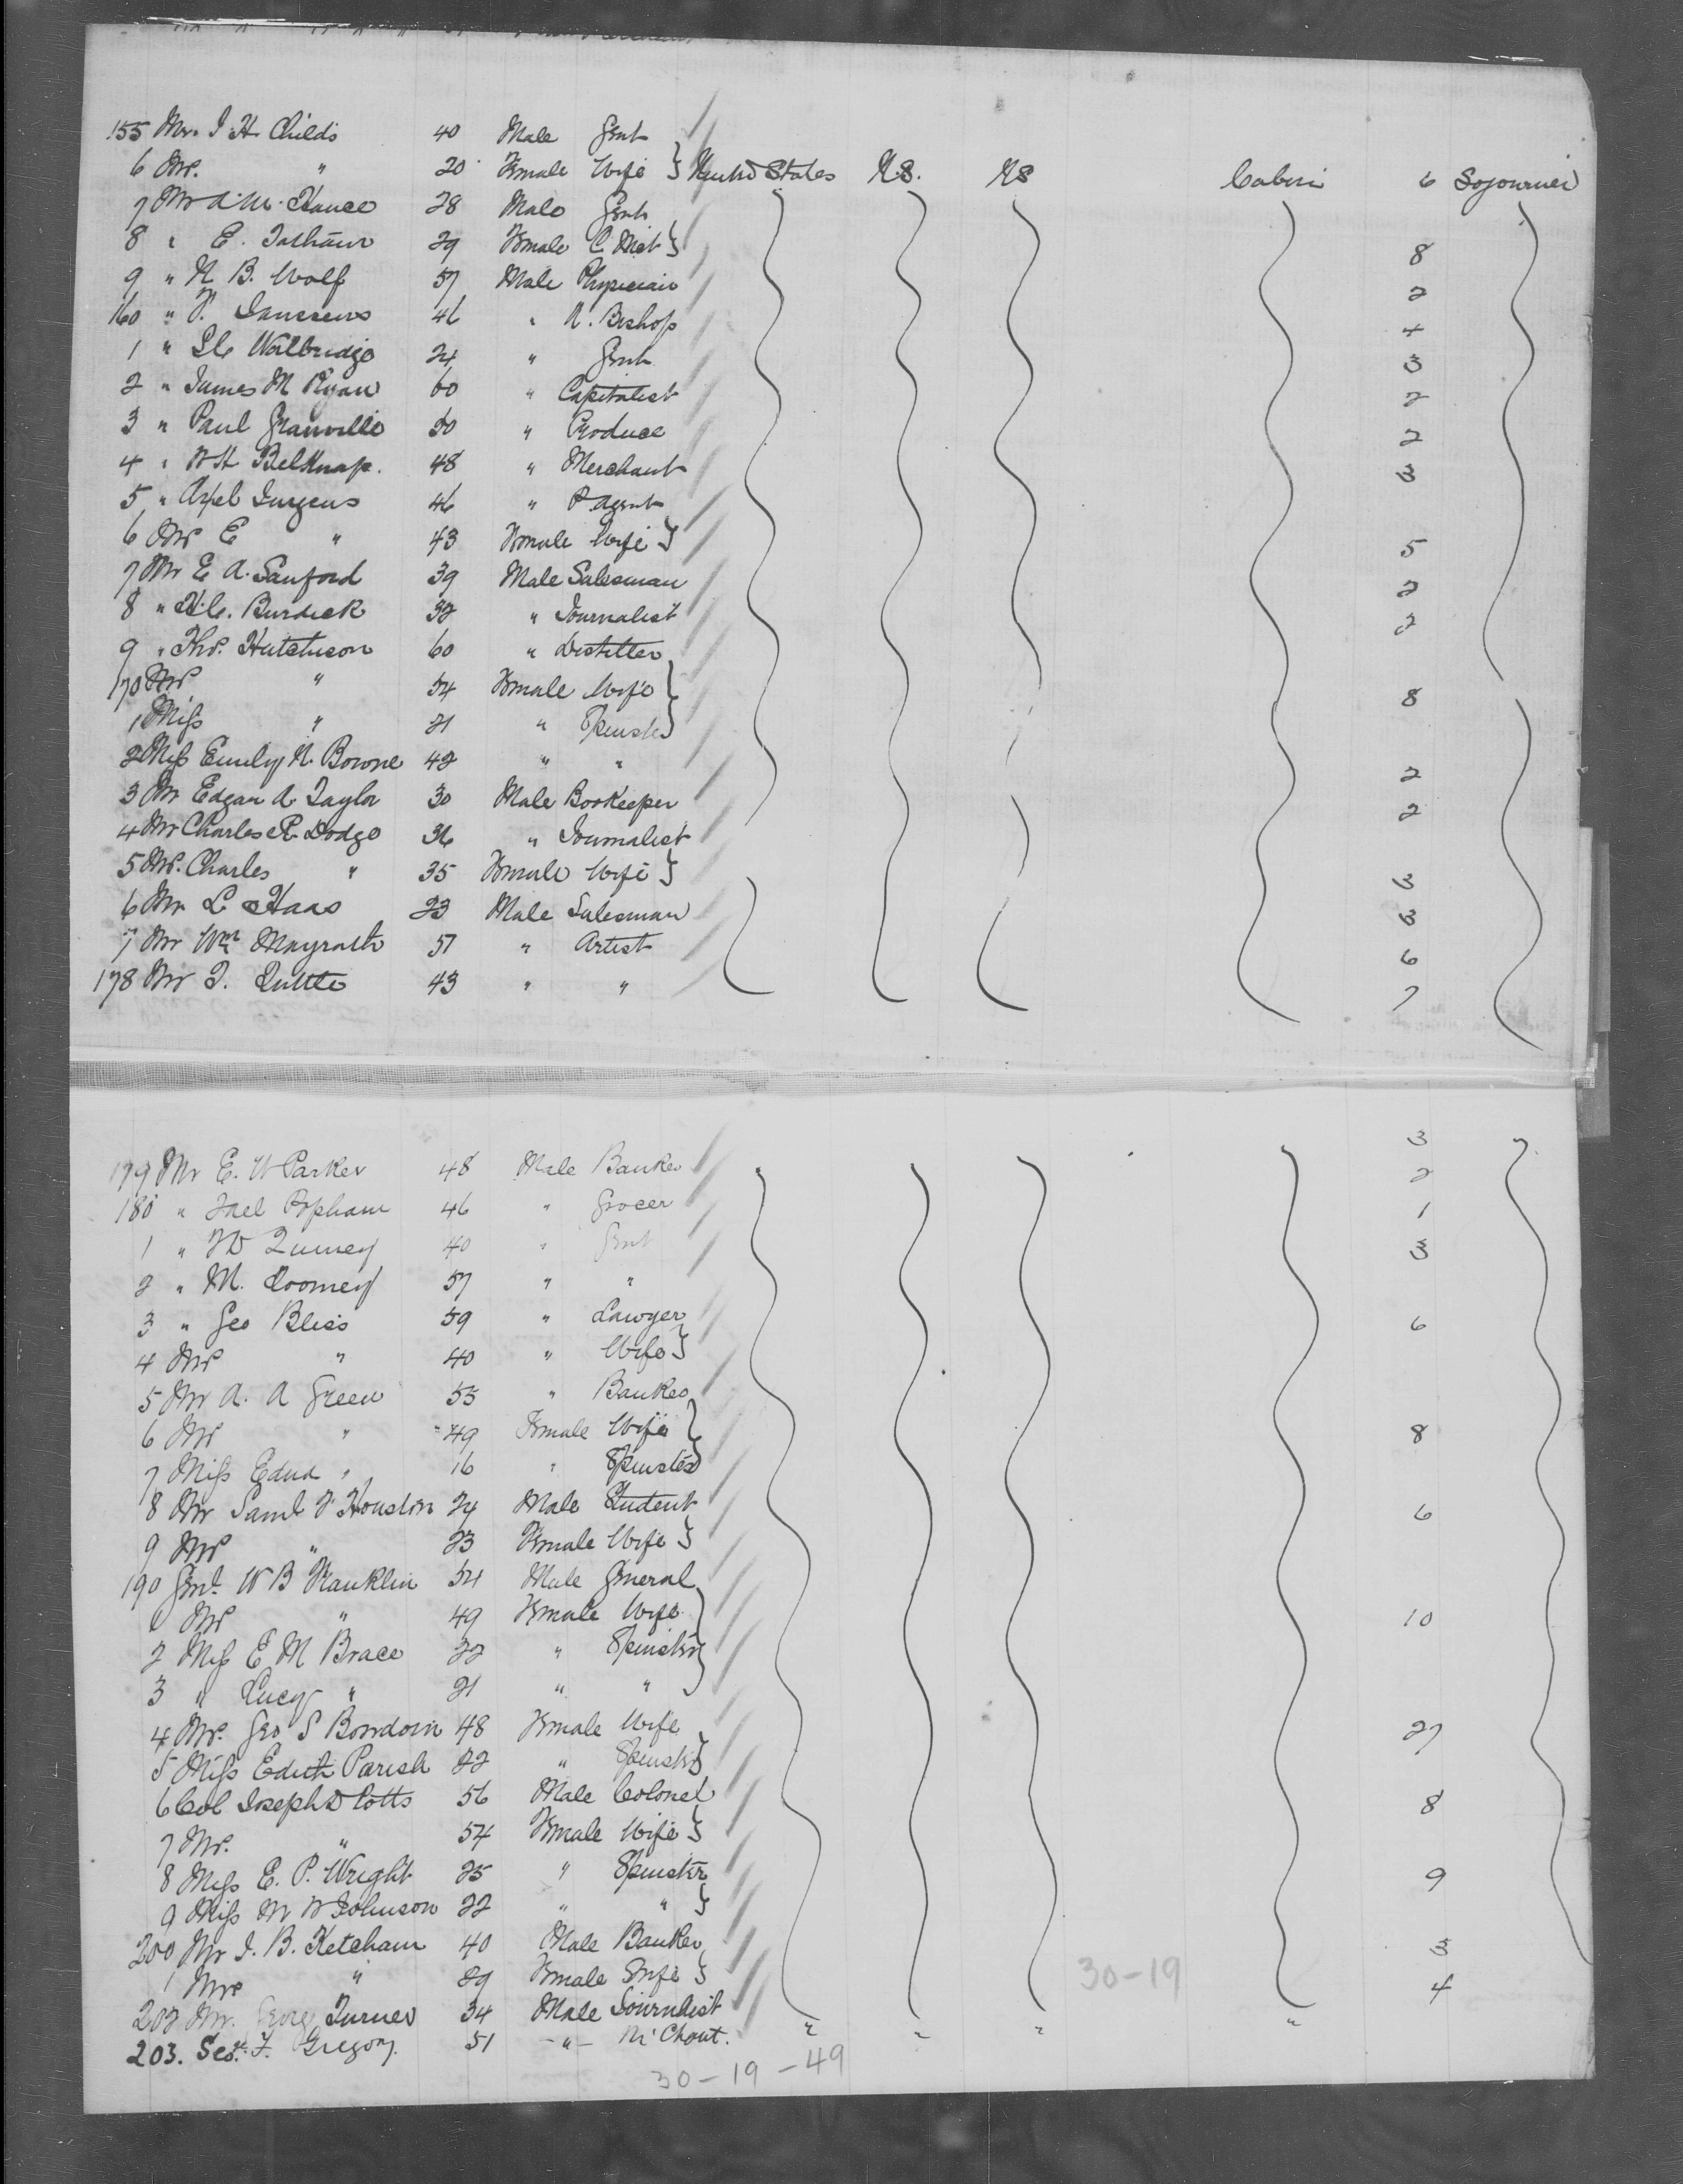 155 Mr. J. H. Childs 40 Male Gent
6 Mrs. " 20 Female Wife } United States U.S. U.S. Cabin 6 Sojourner
7 Mr A. M. Hance 28 Male Gent
8 " E. 29 Female } 8
9 " N. B. Wolf 57 Male Physician 2
160 " F. Janssens 46 " R. Bishop 4
1 " Walbridge 24 " Gent 3
2 " James M Ryan 60 " Capitalist 2
3 " Paul Granville 30 " Produce 2
4 " W H Belknap. 48 " Merchant 3
5 " Axel Jurgens 46 " P Agent
6 Mrs E " 43 Female Wife } 5
7 Mr E. A. Sanford 39 Male Salesman 2
8 " Burdick 32 " Journalist 2
9 " Thos. Hutchison 60 " Distiller
170 Mrs " 54 Female Wife } 8
1 Miss " 21 " Spinster }
2 Miss Emily N. Bowne 42 " " 2
3 Mr Edgar A. Taylor 30 Male Bookeeper 2
4 Mr Charles R. Dodge 36 " Journalist
5 Mrs. Charles " 35 Female Wife } 3
6 Mr L Haas 23 Male Salesman 3
7 Mr Wm Mayrath 57 " Artist 6
178 Mr 43 " " 7
179 Mr E. W Parker 48 Male Banker 3
180 " Popham 46 " Grocer 2
1 " 40 " Gent 1
2 " M. 57 " " 3
3 " Geo Bliss 59 " Lawyer
4 Mrs " 40 " Wife } 6
5 Mr A. A Green 55 " Banker
6 Mrs " 49 Female Wife } 8
7 Miss Edna " 16 " Spinster }
8 Mr Saml F Houston 24 Male Student 6
9 Mrs " 23 Female Wife }
190 Genl. W B Franklin 54 Male General
1 Mrs " 49 Female Wife } 10
2 Miss E M Brace 22 " Spinster }
3 " Lucy " 21 " " }
4 Mrs. Geo S Bowdoin 48 Female Wife 27
5 Miss Edith Parish 22 " Spinster }
6 Col Joseph D Potts 56 Male Colonel 8
7 Mrs. " 54 Female Wife }
8 Miss E. P. Wright 25 " Spinster 9
9 Miss M W Johnson 22 " " }
200 Mr J. B. Ketcham 40 Male Banker 3
1 Mrs " 29 Female Wife } 30-19
202 Mr. Turner 34 Male Journalist 4
203. F. Gregory. 51 -"- " " " "
30-19-49